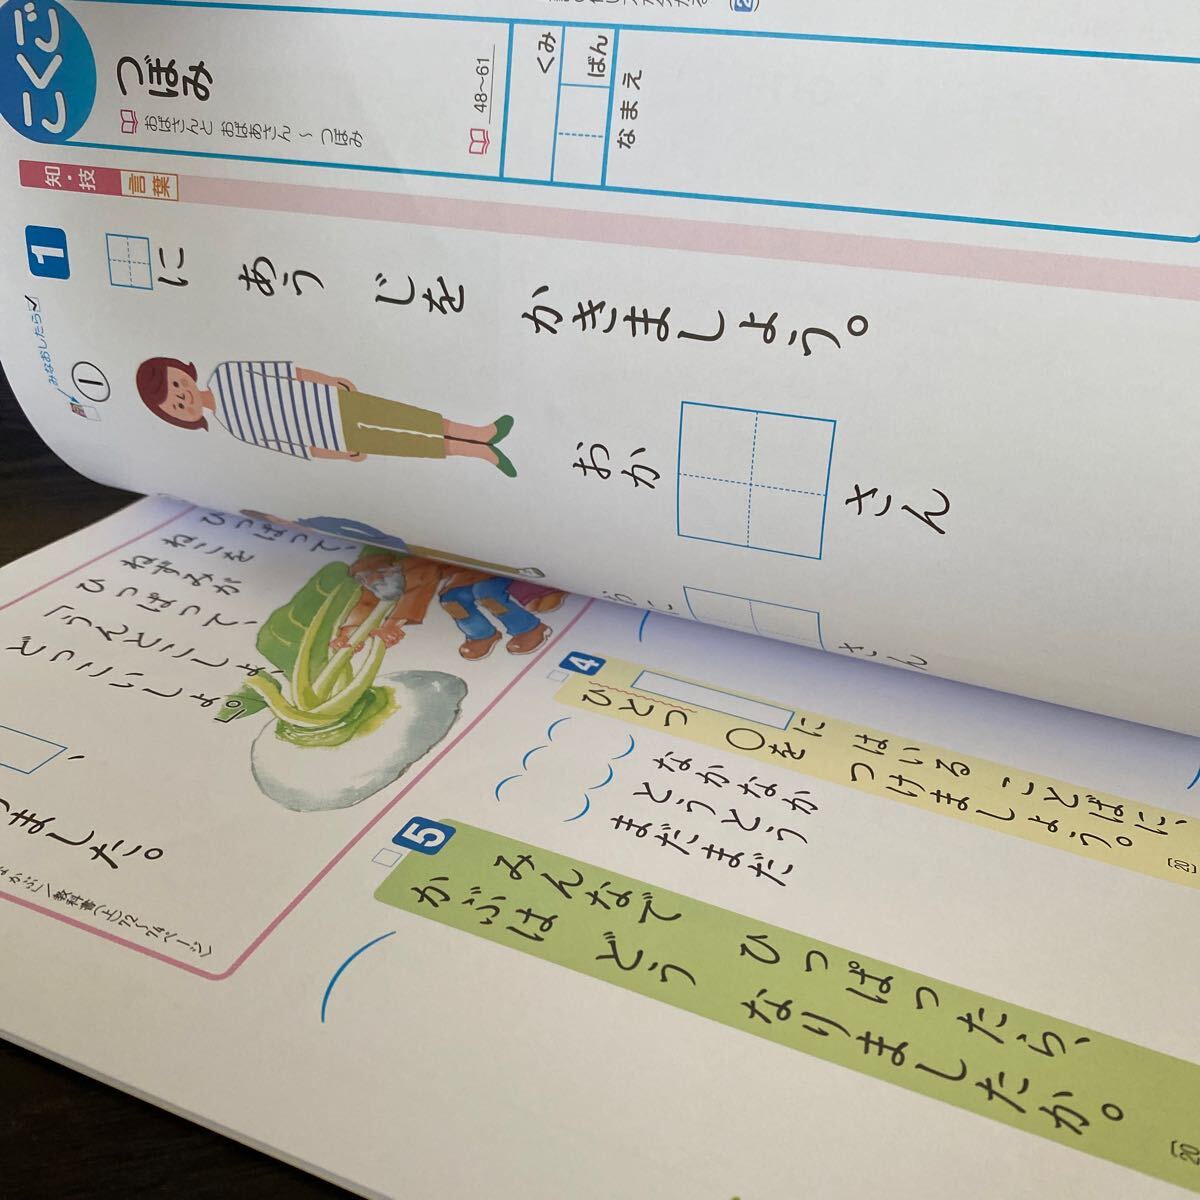 こくご
つぼみ
おばさんと おばあさん ～ つぼみ
48～61
くみ
ばん
なまえ
知・技
言葉
1
に あう じを かきましょう。
みなおしたら
①
おか
さん
さん
ひっぱって、
ねこを
ねずみが
ひっぱって、
「うんとこしょ、
どっこいしょ。」
、
ました。
かぶ／教科書(上)72～74ページ
4
ひとつ
に はいる ことばに、
○を つけましょう。
20
なかなか
とうとう
まだまだ
5
みんなで ひっぱったら、
かぶは どう なりましたか。
20